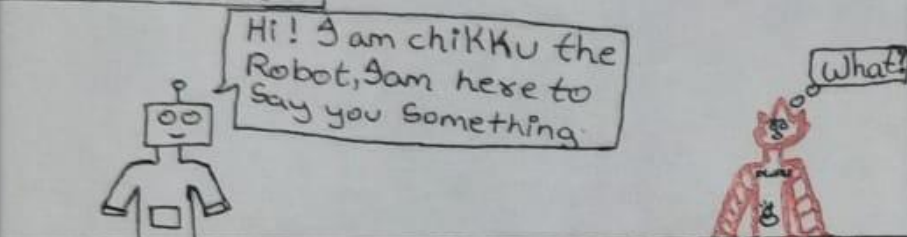 Hi! I am chikku the
Robot, I am here to
Say you Something.
What?